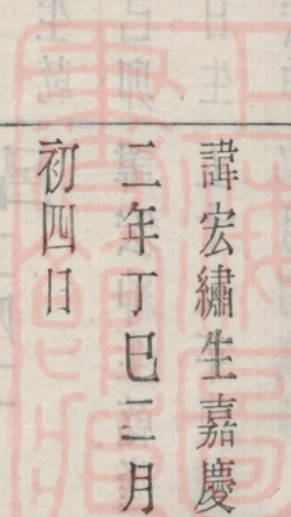 諱宏繡生嘉慶
二年丁巳二月
初四日